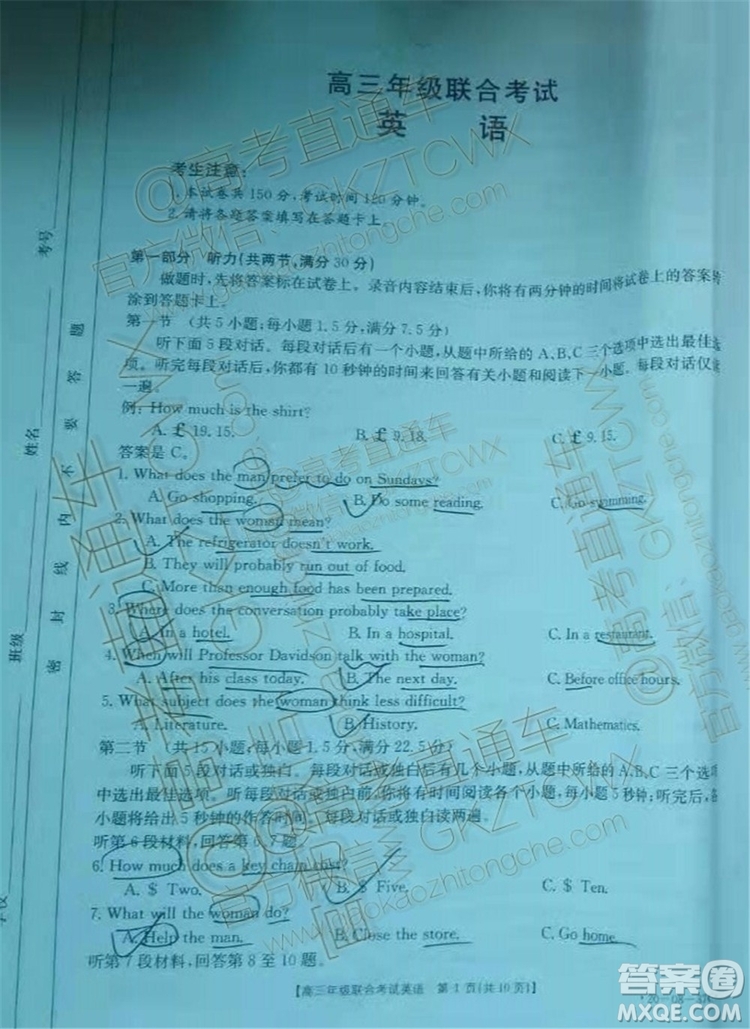 高三年级联合考试
英 语
考生注意:
1. 本试卷共150分,考试时间120分钟。
2. 请将各题答案填写在答题卡上。
第一部分 听力(共两节,满分30分)
做题时,先将答案标在试卷上。录音内容结束后,你将有两分钟的时间将试卷上的答案转
涂到答题卡上。
第一节 (共5小题;每小题1.5分,满分7.5分)
听下面5段对话。每段对话后有一个小题,从题中所给的A、B、C三个选项中选出最佳选
项。听完每段对话后,你都有10秒钟的时间来回答有关小题和阅读下一小题。每段对话仅读
一遍。
例: How much is the shirt?
A. £ 19. 15. B. £ 9. 18. C. £ 9. 15.
答案是 C。
1. What does the man prefer to do on Sundays?
A. Go shopping. B. Do some reading. C. Go swimming.
2. What does the woman mean?
A. The refrigerator doesn't work.
B. They will probably run out of food.
C. More than enough food has been prepared.
3. Where does the conversation probably take place?
A. In a hotel. B. In a hospital. C. In a restaurant.
4. When will Professor Davidson talk with the woman?
A. After his class today. B. The next day. C. Before office hours.
5. What subject does the woman think less difficult?
A. Literature. B. History. C. Mathematics.
第二节 (共15小题;每小题1.5分,满分22.5分)
听下面5段对话或独白。每段对话或独白后有几个小题,从题中所给的A、B、C三个选项
中选出最佳选项。听每段对话或独白前,你将有时间阅读各个小题,每小题5秒钟;听完后,各
小题将给出5秒钟的作答时间。每段对话或独白读两遍。
听第6段材料,回答第6、7题。
6. How much does a key chain cost?
A. $ Two. B. $ Five. C. $ Ten.
7. What will the woman do?
A. Help the man. B. Close the store. C. Go home.
听第7段材料,回答第8至10题。
【高三年级联合考试英语 第1页(共10页)】
考号
姓名
班级
密 封 线 内 不 要 答 题
@高考直通车
官方微信:GKZTCWX
www.gaokaozhitongche.com
答案圈
MXQE.COM